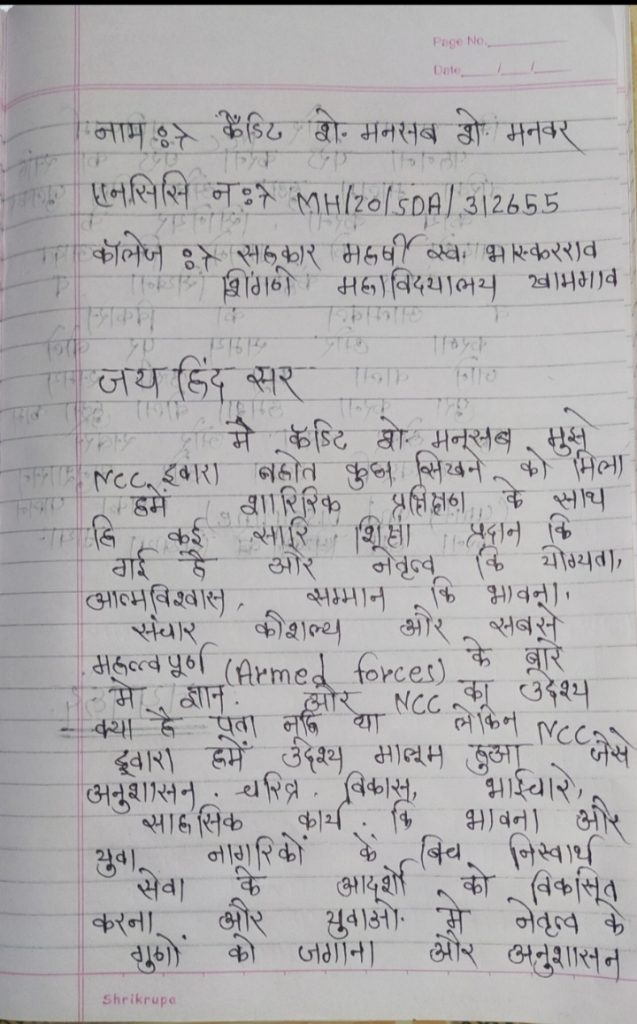 Page No.
Date / /
नाम :→ कॅडिट शे. मनसब शे. मनवर
एनसिसि न :→ MH/20/SDA/312655
कॉलेज :→ सहकार महर्षी स्व. भास्करराव
शिंगणे महाविदयालय खामगाव
जय हिंद सर
मै कॅडिट शे. मनसब मुझे
NCC द्वारा बहोत कुछ सिखने को मिला
हमें शारिरिक प्रशिक्षण के साथ
हि कई सारि शिक्षा प्रदान कि
गई है और नेतृत्व कि योग्यता,
आत्मविश्वास, सम्मान कि भावना,
संचार कौशल्य और सबसे
महत्वपूर्ण (Armed forces) के बारे
मे ज्ञान. और NCC का उद्देश्य
क्या है पता नहि था लेकिन NCC
द्वारा हमें उद्देश्य मालूम हुआ जैसे
अनुशासन. चरित्र. विकास, भाईचारे,
साहसिक कार्य. कि भावना और
युवा नागरिकों के बिच निस्वार्थ
सेवा के आदर्शो को विकसित
करना और युवाओ. मे नेतृत्व के
गुणों को जगाना और अनुशासन
Shrikrupa